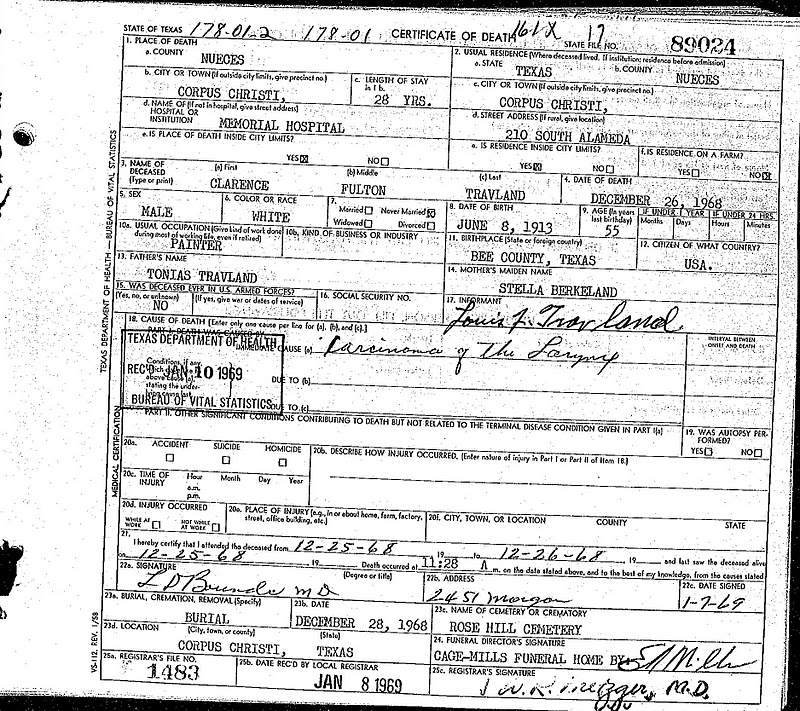 STATE OF TEXAS 178-01-2 178-01 CERTIFICATE OF DEATH 161X 17 STATE FILE NO. 89024
1. PLACE OF DEATH
a. COUNTY NUECES
2. USUAL RESIDENCE (Where deceased lived. If institution: residence before admission)
a. STATE TEXAS b. COUNTY NUECES
b. CITY OR TOWN (If outside city limits, give precinct no.) CORPUS CHRISTI,
c. LENGTH OF STAY in 1 b. 28 YRS.
c. CITY OR TOWN (If outside city limits, give precinct no.) CORPUS CHRISTI,
d. NAME OF (If not in hospital, give street address) HOSPITAL OR INSTITUTION MEMORIAL HOSPITAL
d. STREET ADDRESS (If rural, give location) 210 SOUTH ALAMEDA
e. IS PLACE OF DEATH INSIDE CITY LIMITS? YES☒ NO☐
e. IS RESIDENCE INSIDE CITY LIMITS? YES☒ NO☐
f. IS RESIDENCE ON A FARM? YES☐ NO☒
3. NAME OF DECEASED (Type or print) (a) First CLARENCE (b) Middle FULTON (c) Last TRAVLAND
4. DATE OF DEATH DECEMBER 26, 1968
5. SEX MALE
6. COLOR OR RACE WHITE
7. Married☐ Never Married☒ Widowed☐ Divorced☐
8. DATE OF BIRTH JUNE 8, 1913
9. AGE (In years last birthday) 55
IF UNDER 1 YEAR Months Days
IF UNDER 24 HRS. Hours Minutes
10a. USUAL OCCUPATION (Give kind of work done during most of working life, even if retired) PAINTER
10b. KIND OF BUSINESS OR INDUSTRY
11. BIRTHPLACE (State or foreign country) BEE COUNTY, TEXAS
12. CITIZEN OF WHAT COUNTRY? USA.
13. FATHER'S NAME TONIAS TRAVLAND
14. MOTHER'S MAIDEN NAME STELLA BERKELAND
15. WAS DECEASED EVER IN U.S. ARMED FORCES? (Yes, no, or unknown) NO (If yes, give war or dates of service)
16. SOCIAL SECURITY NO.
17. INFORMANT Louis J. Travland
18. CAUSE OF DEATH (Enter only one cause per line for (a), (b), and (c).)
PART I. DEATH WAS CAUSED BY:
IMMEDIATE CAUSE (a) Carcinoma of the Larynx
INTERVAL BETWEEN ONSET AND DEATH
TEXAS DEPARTMENT OF HEALTH
REC'D JAN 10 1969
BUREAU OF VITAL STATISTICS
Conditions, if any
above cause (a), stating the under-
DUE TO (b)
DUE TO (c)
PART II. OTHER SIGNIFICANT CONDITIONS CONTRIBUTING TO DEATH BUT NOT RELATED TO THE TERMINAL DISEASE CONDITION GIVEN IN PART I(a)
19. WAS AUTOPSY PERFORMED? YES☐ NO☐
20a. ACCIDENT ☐ SUICIDE ☐ HOMICIDE ☐
20b. DESCRIBE HOW INJURY OCCURRED. (Enter nature of injury in Part I or Part II of item 18.)
20c. TIME OF INJURY Hour a.m. p.m. Month Day Year
20d. INJURY OCCURRED WHILE AT WORK ☐ NOT WHILE AT WORK ☐
20e. PLACE OF INJURY (e.g., in or about home, farm, factory, street, office building, etc.)
20f. CITY, TOWN, OR LOCATION COUNTY STATE
21. I hereby certify that I attended the deceased from 12-25-68 19 to 12-26-68, 19 and last saw the deceased alive
on 12-25-68 19 Death occurred at 11:28 A m. on the date stated above, and to the best of my knowledge, from the causes stated
22a. SIGNATURE (Degree or title) M D
22b. ADDRESS 2451 Morgan
22c. DATE SIGNED 1-7-69
23a. BURIAL, CREMATION, REMOVAL (Specify) BURIAL
23b. DATE DECEMBER 28, 1968
23c. NAME OF CEMETERY OR CREMATORY ROSE HILL CEMETERY
23d. LOCATION (City, town, or county) (State) CORPUS CHRISTI, TEXAS
24. FUNERAL DIRECTOR'S SIGNATURE CAGE-MILLS FUNERAL HOME BY
25a. REGISTRAR'S FILE NO. 1483
25b. DATE REC'D BY LOCAL REGISTRAR JAN 8 1969
25c. REGISTRAR'S SIGNATURE M.D.
TEXAS DEPARTMENT OF HEALTH — BUREAU OF VITAL STATISTICS
MEDICAL CERTIFICATION
VS-112, REV. 1/58